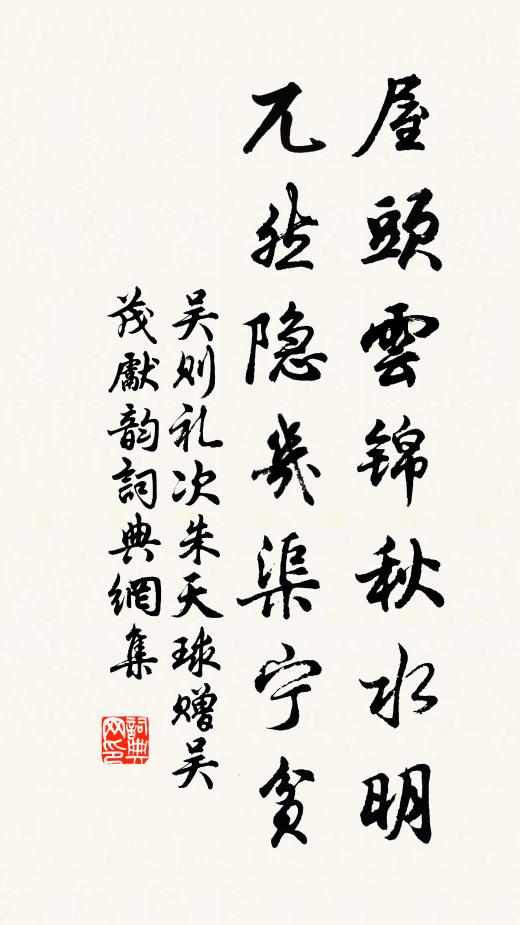 屋頭雲錦秋水明
兀然隐几渠宁贫
吴则礼次朱天球赠吴
茂獻韵詞典網集
詞典
网印